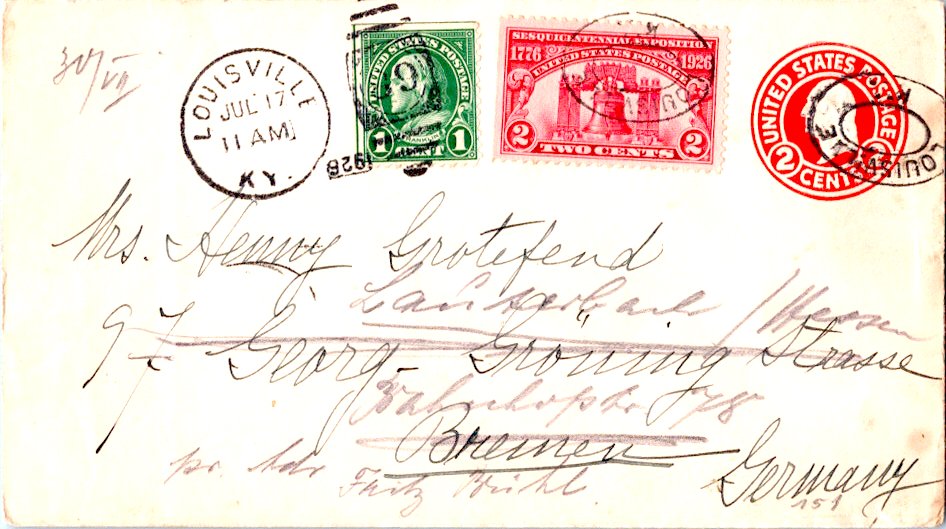 30/VII
LOUISVILLE
JUL 17
11 AM
KY.
1926
UNITED STATES POSTAGE
FRANKLIN
1 CENT 1
SESQUICENTENNIAL EXPOSITION
1776 1926
UNITED STATES POSTAGE
2 TWO CENTS 2
UNITED STATES POSTAGE
2 CENTS
Mrs. Henny Grotefend
Lauterbach / Hessen
97 Georg-Gröning Strasse
Bahnhofstr 78
Bremen
pr. Adr Fritz Brühl.
Germany
151